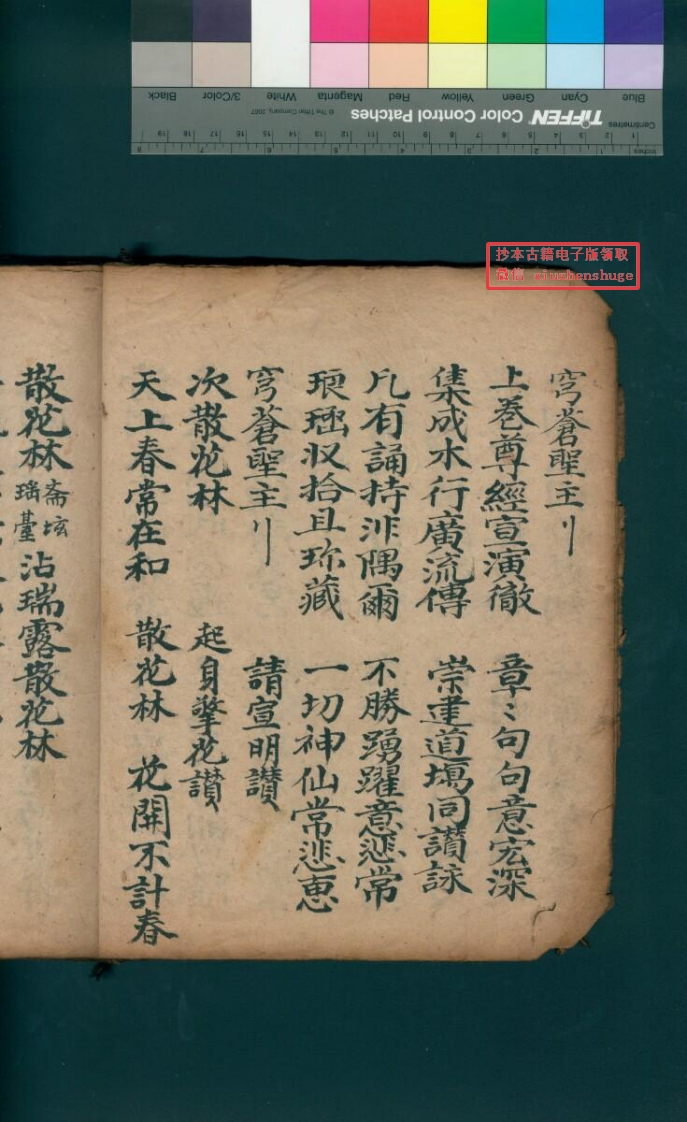 Blue Cyan Green Yellow Red Magenta White 3/Color Black
TIFFEN Color Control Patches © The Tiffen Company, 2007
Centimetres
Inches
抄本古籍电子版领取
微信 xiuzhenshuge
穹蒼聖主〢
上卷尊經宣演徹 章〻句句意宏深
集成水行廣流傳 崇建道場同讃詠
凡有誦持非隅爾 不勝踴躍意悲常
琅 収拾且珎藏 一切神仙常悲恵
穹蒼聖主〢 請宣明讃
次散花林 起身擎花讃
天上春常在和 散花林 花開不計春
散花林 瑶臺 沾瑞露散花林